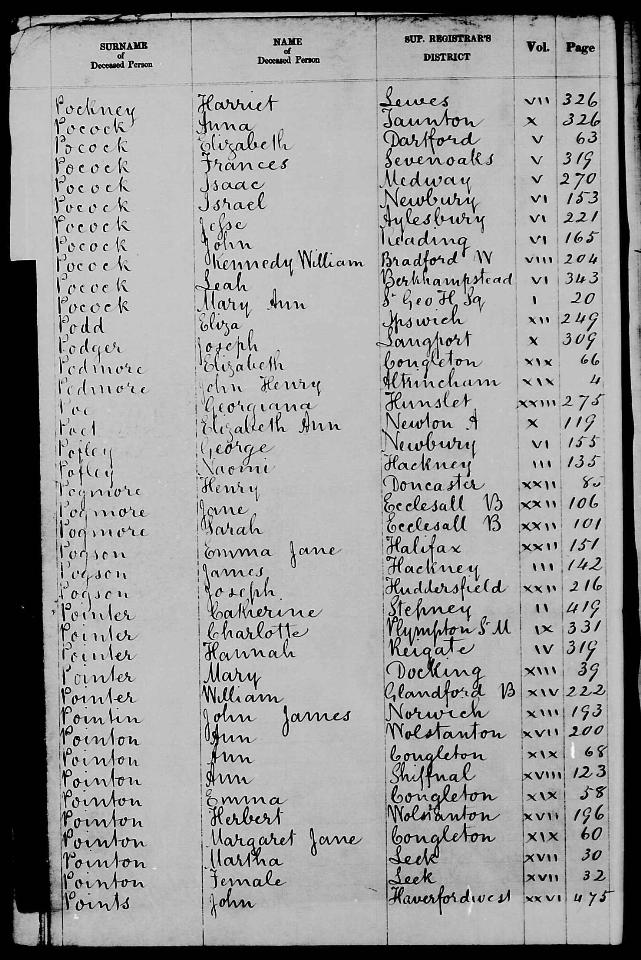 SURNAME of Deceased Person NAME of Deceased Person SUP. REGISTRAR'S DISTRICT Vol. Page
Pockney Harriet Lewes VII 326
Pocock Anna Taunton X 326
Pocock Elizabeth Dartford V 63
Pocock Frances Sevenoaks V 319
Pocock Isaac Medway V 270
Pocock Israel Newbury VI 153
Pocock Jesse Aylesbury VI 221
Pocock John Reading VI 165
Pocock Kennedy William Bradford W VIII 204
Pocock Leah Berkhampstead VI 343
Pocock Mary Ann St Geo H Sq I 20
Podd Eliza Ipswich XII 249
Podger Joseph Langport X 309
Podmore Elizabeth Congleton XIX 66
Podmore John Henry Altrincham XIX 4
Poe Georgiana Hunslet XXIII 275
Poet Elizabeth Ann Newton A X 119
Pofley George Newbury VI 155
Pofley Naomi Hackney III 135
Pogmore Henry Doncaster XXII 85
Pogmore Jane Ecclesall B XXII 106
Pogmore Sarah Ecclesall B XXII 101
Pogson Emma Jane Halifax XXII 151
Pogson James Hackney III 142
Pogson Joseph Huddersfield XXII 216
Pointer Catherine Stepney II 419
Pointer Charlotte Plympton St M IX 331
Pointer Hannah Reigate IV 319
Pointer Mary Docking XIII 39
Pointer William Glandford B XIV 222
Pointin John James Norwich XIII 193
Pointon Ann Wolstanton XVII 200
Pointon Ann Congleton XIX 68
Pointon Ann Shiffnal XVIII 123
Pointon Emma Congleton XIX 58
Pointon Herbert Wolstanton XVII 196
Pointon Margaret Jane Congleton XIX 60
Pointon Martha Leek XVII 30
Pointon Female Leek XVII 32
Points John Haverfordwest XXVI 475